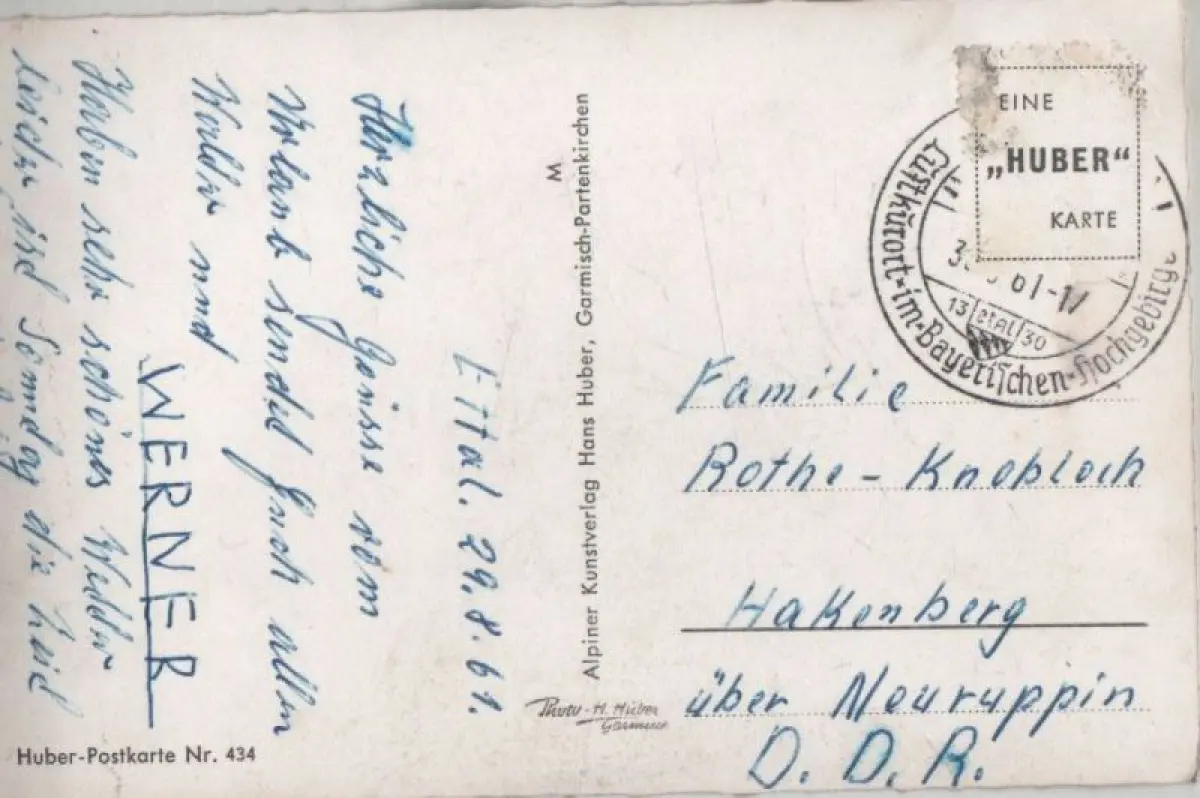 Ettal. 29.8.61.
Herzliche Grüsse vom
Urlaub sendet Euch allen
Walter und
WERNER
Haben sehr schönes Wetter
leider ist Sonntag die Zeit
Huber-Postkarte Nr. 434
M
Alpiner Kunstverlag Hans Huber, Garmisch-Partenkirchen
Photo-H. Huber
Garmisch
EINE
„HUBER“
KARTE
Luftkurort-im-Bayerischen-Hochgebirge
61-1
13 etal 30
Familie
Rothe-Knobloch
Hakenberg
über Neuruppin
D. D. R.